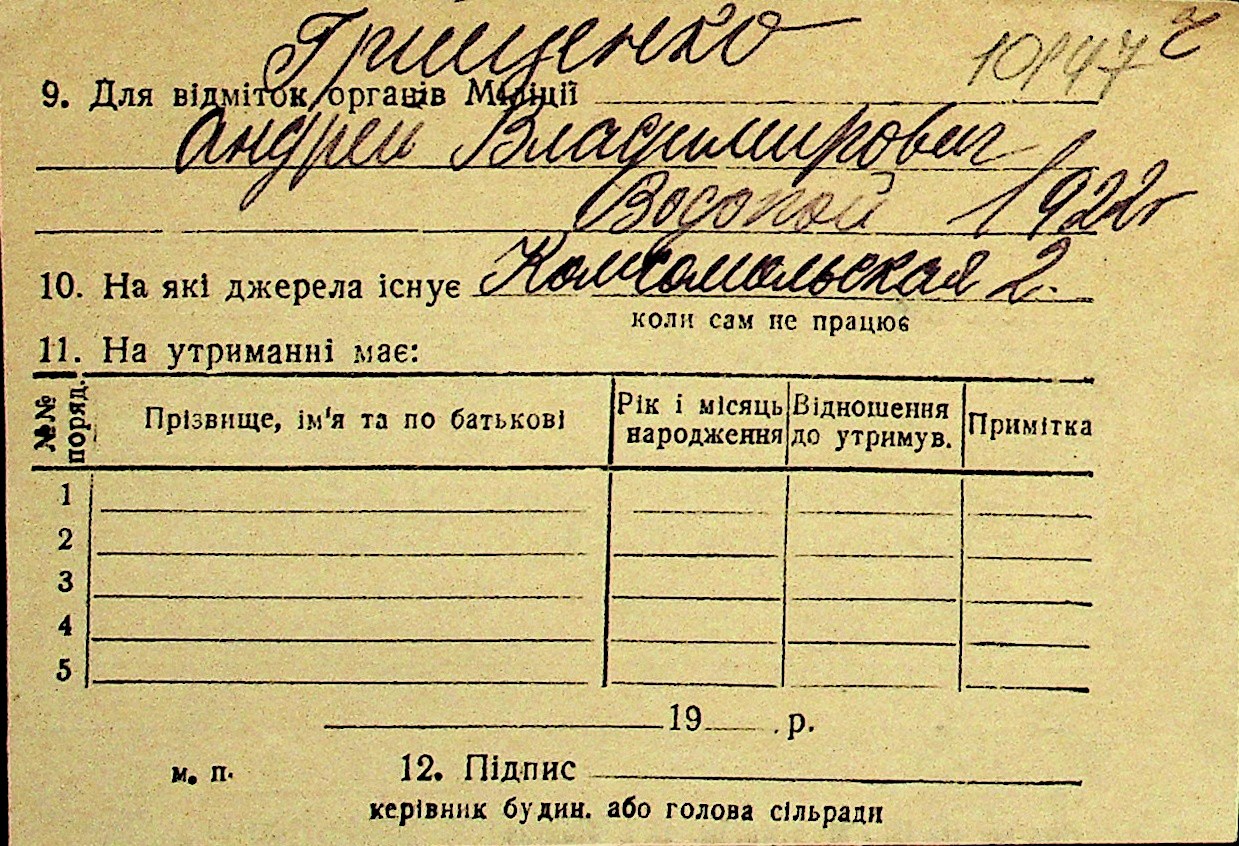 Грищенко 10/47 г
9. Для відміток органів Міліції
Андрей Владимирович
Водопой 1922г
10. На які джерела існує Комсомольская 2.
коли сам не працює
11. На утриманні має:
№№ поряд. Прізвище, ім'я та по батькові Рік і місяць народження Відношення до утримув. Примітка
1
2
3
4
5
19 р.
м. п. 12. Підпис
керівник будин. або голова сільради